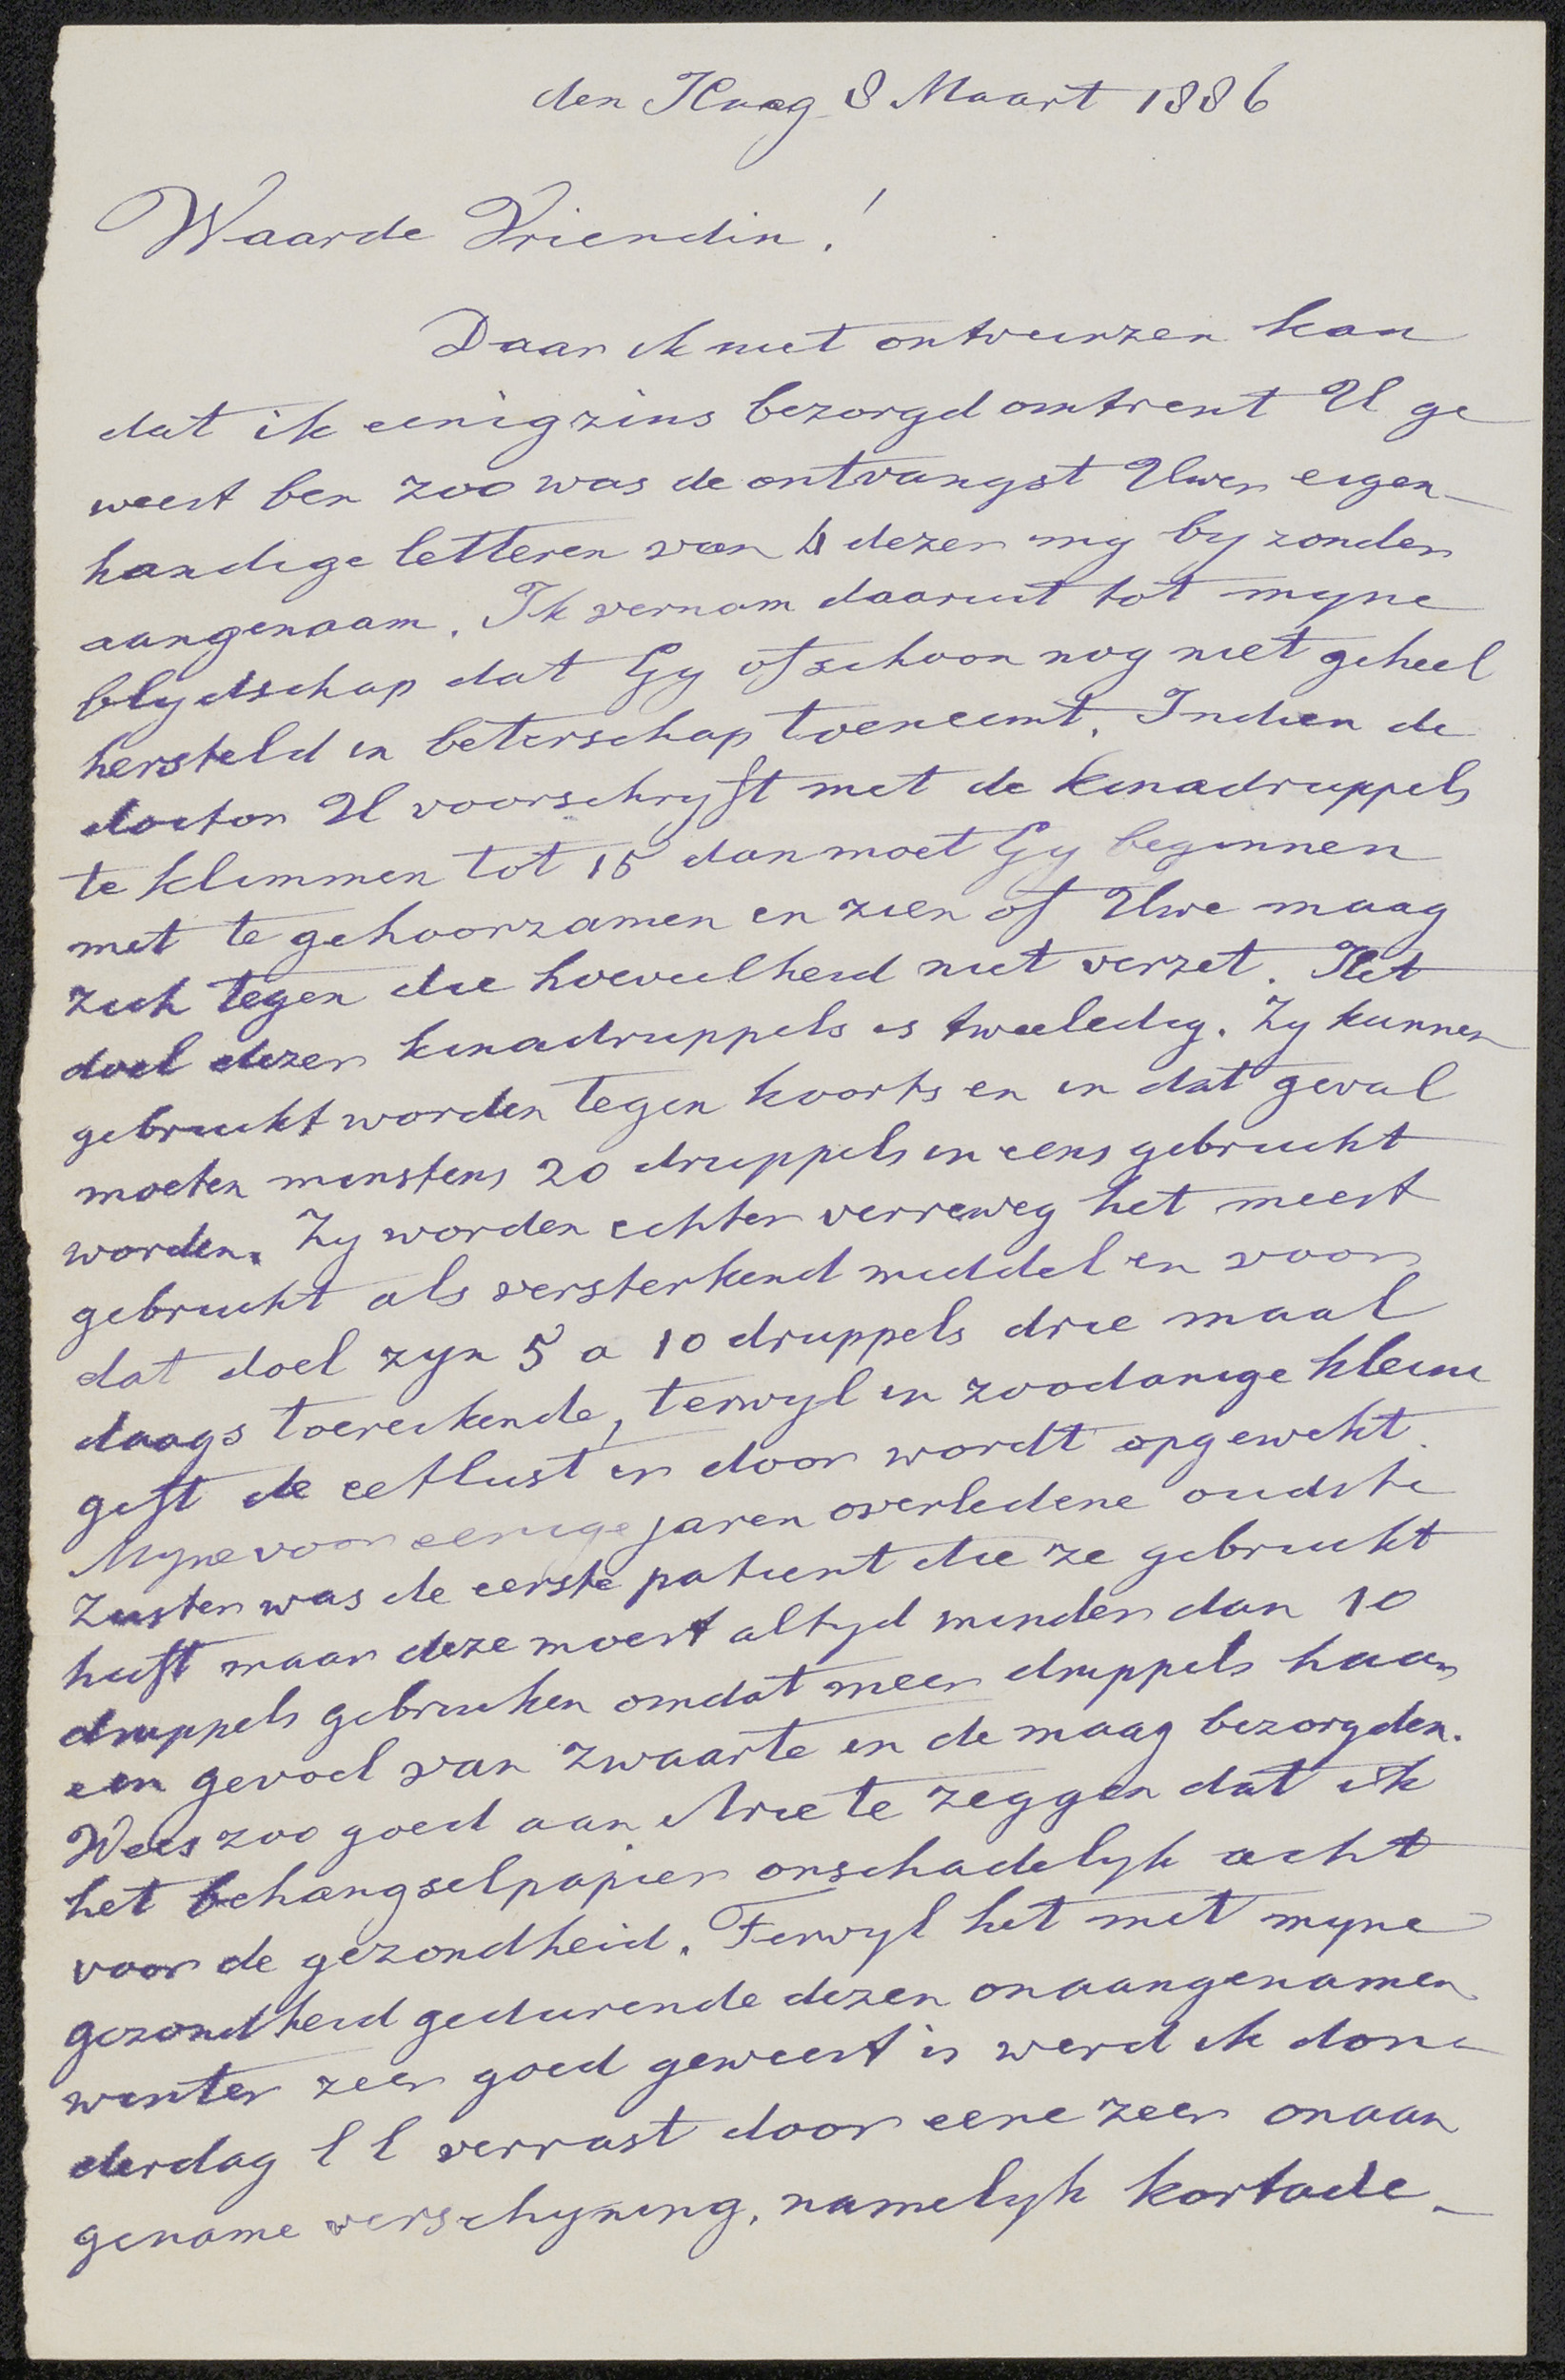 den Haag 8 Maart 1886
Waarde Vriendin!
Daar ik niet ontveinzen kan
dat ik eenigzins bezorgd omtrent U ge
weest ben zoo was de ontvangst Uwer eigen-
handige letteren van 4 dezer my byzonder
aangenaam. Ik vernam daaruit tot myne
blydschap dat Gy ofschoon nog niet geheel
hersteld in beterschap toeneemt. Indien de
doctor U voorschryft met de kinadruppels
te klimmen tot 15 dan moet Gy beginnen
met te gehoorzamen en zien of Uwe maag
zich tegen die hoeveelheid niet verzet. Het
doel dezer kinadruppels is tweeledig. Zy kunnen
gebruikt worden tegen koorts en in dat geval
moeten minstens 20 druppels in eens gebruikt
worden. Zy worden echter verreweg het meest
gebruikt als versterkend middel en voor
dat doel zyn 5 a 10 druppels drie maal
daags toereikende, terwyl in zoodanige kleine
gift de eetlust er door wordt opgewekt.
Myne voor eenige jaren overledene oudste
zuster was de eerste patient die ze gebruikt
heeft maar deze moest altyd minder dan 10
druppels gebruiken omdat meer druppels haar
een gevoel van zwaarte in de maag bezorgden.
Wees zoo goed aan Arie te zeggen dat ik
het behangselpapier onschadelyk acht
voor de gezondheid. Terwyl het met myne
gezondheid gedurende dezen onaangenamen
winter zeer goed geweest is werd ik don-
derdag l l verrast door eene zeer onaan
gename verschyning, namelyk kortade-